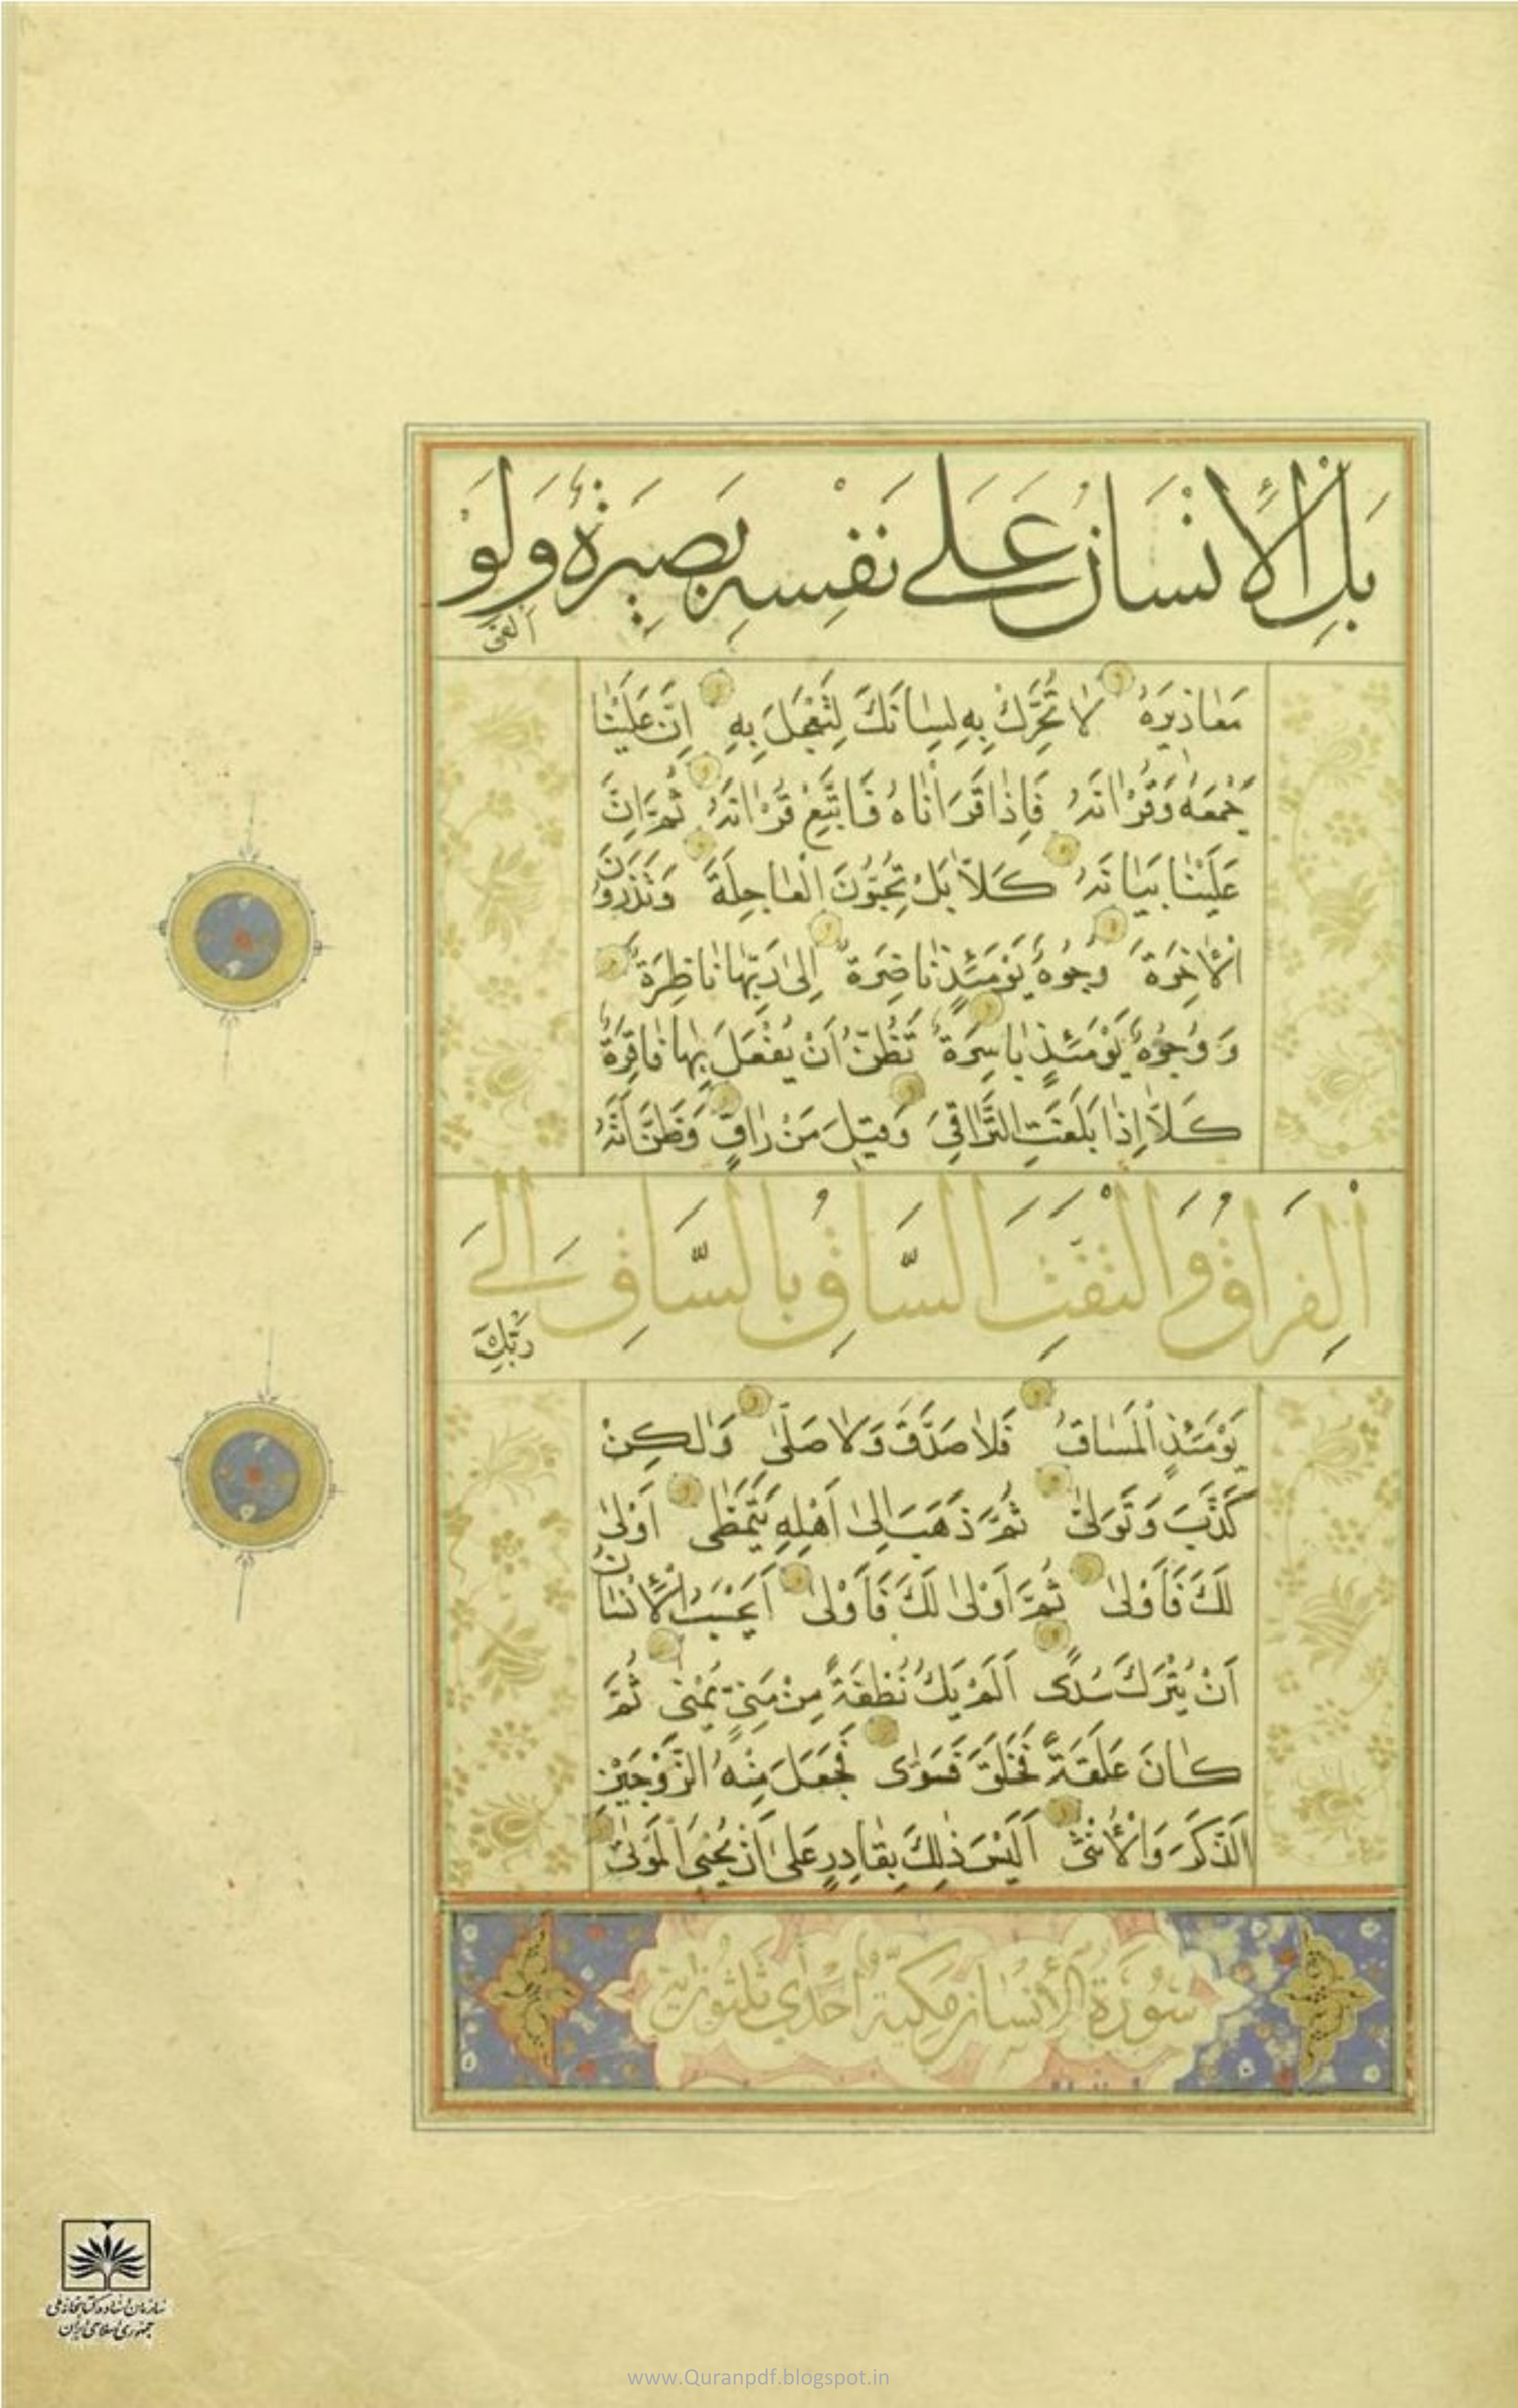 بَلِ الْاِنْسَانُ عَلٰى نَفْسِهٖ بَصِيرَةٌ وَلَوْ
اَلْقٰى
مَعَاذِيرَهُ لَا تُحَرِّكْ بِهٖ لِسَانَكَ لِتَعْجَلَ بِهٖ اِنَّ عَلَيْنَا
جَمْعَهُ وَقُرْاٰنَهُ فَاِذَا قَرَاْنَاهُ فَاتَّبِعْ قُرْاٰنَهُ ثُمَّ اِنَّ
عَلَيْنَا بَيَانَهُ كَلَّا بَلْ تُحِبُّونَ الْعَاجِلَةَ وَتَذَرُونَ
الْاٰخِرَةَ وُجُوهٌ يَوْمَئِذٍ نَاضِرَةٌ اِلٰى رَبِّهَا نَاظِرَةٌ
وَوُجُوهٌ يَوْمَئِذٍ بَاسِرَةٌ تَظُنُّ اَنْ يُفْعَلَ بِهَا فَاقِرَةٌ
كَلَّا اِذَا بَلَغَتِ التَّرَاقِىَ وَقِيلَ مَنْ رَاقٍ وَظَنَّ اَنَّهُ
الْفِرَاقُ وَالْتَفَّتِ السَّاقُ بِالسَّاقِ اِلٰى
رَبِّكَ
يَوْمَئِذٍ الْمَسَاقُ فَلَا صَدَّقَ وَلَا صَلّٰى وَلٰكِنْ
كَذَّبَ وَتَوَلّٰى ثُمَّ ذَهَبَ اِلٰى اَهْلِهٖ يَتَمَطّٰى اَوْلٰى
لَكَ فَاَوْلٰى ثُمَّ اَوْلٰى لَكَ فَاَوْلٰى اَيَحْسَبُ الْاِنْسَانُ
اَنْ يُتْرَكَ سُدًى اَلَمْ يَكُ نُطْفَةً مِنْ مَنِىٍّ يُمْنٰى ثُمَّ
كَانَ عَلَقَةً فَخَلَقَ فَسَوّٰى فَجَعَلَ مِنْهُ الزَّوْجَيْنِ
الذَّكَرَ وَالْاُنْثٰى اَلَيْسَ ذٰلِكَ بِقَادِرٍ عَلٰى اَنْ يُحْيِىَ الْمَوْتٰى
سُورَةُ الْاِنْسَانِ مَكِيَّةٌ اِحْدٰى ثَلٰثُونَ اٰيَةً
سازمان اسناد و کتابخانه ملی
جمهوری اسلامی ایران
www.Quranpdf.blogspot.in